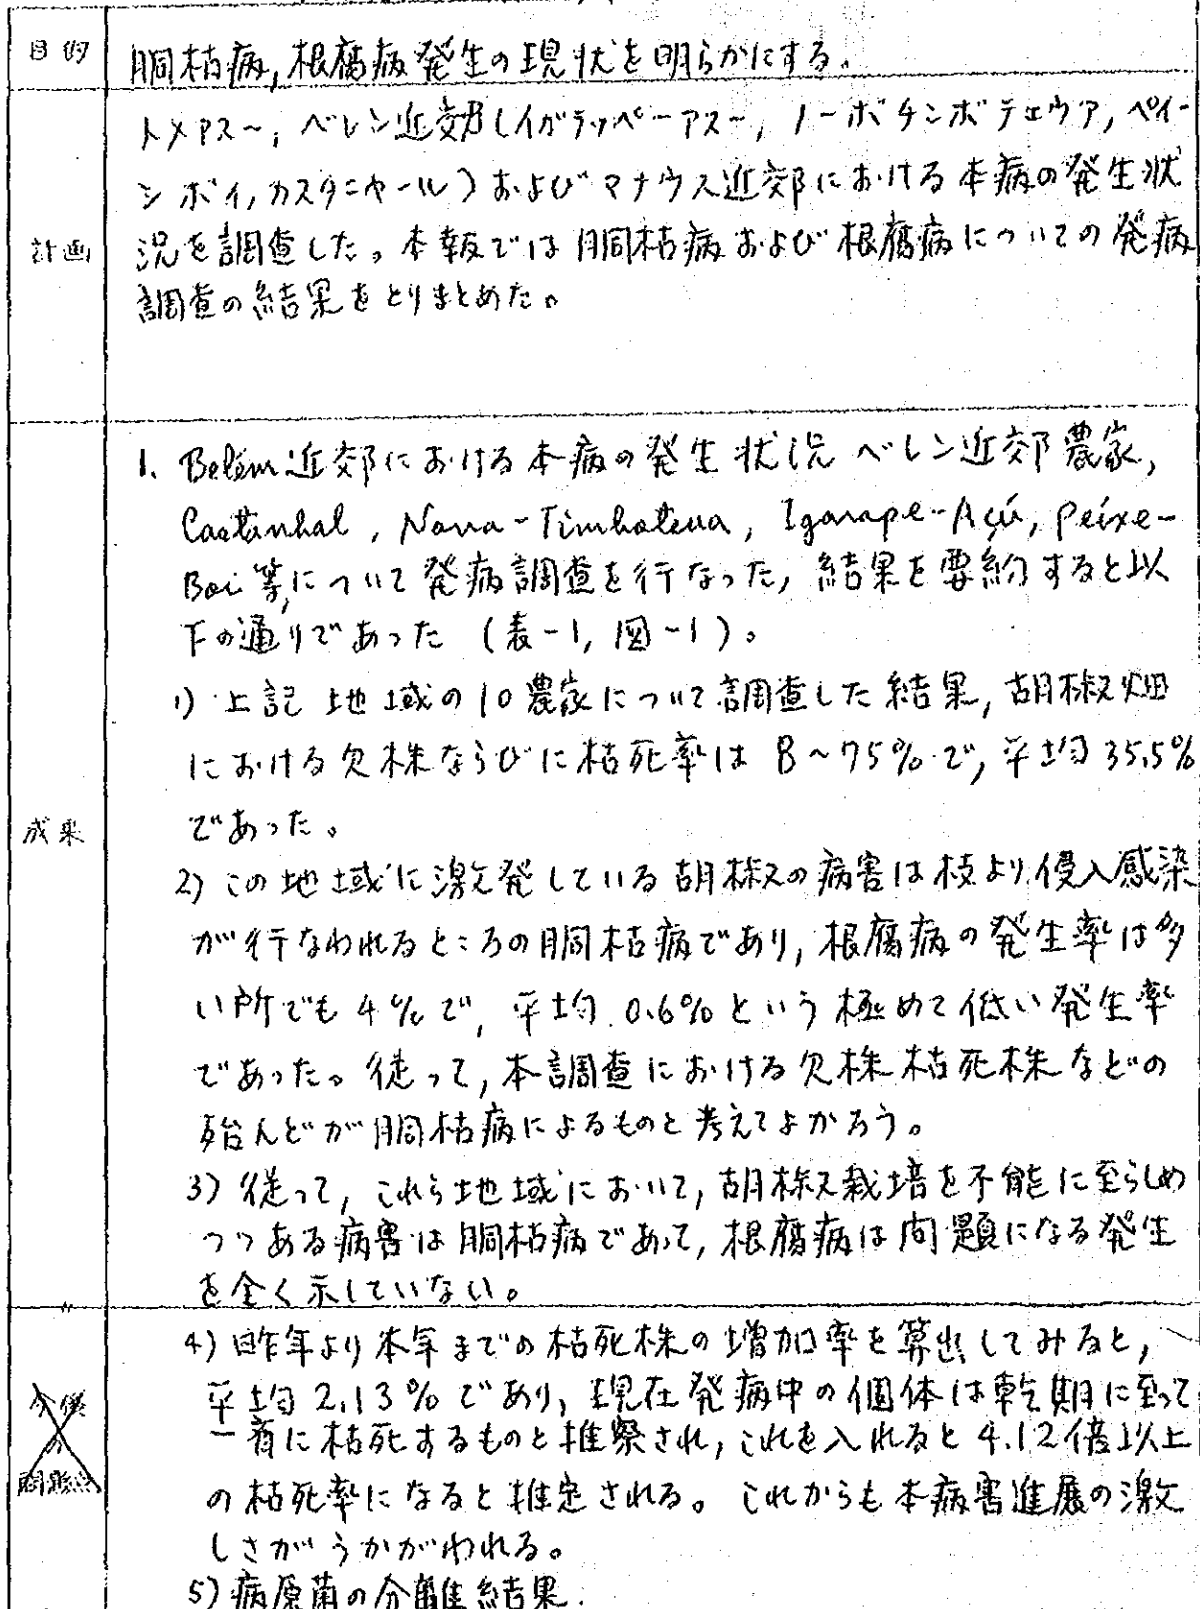 目的
胴枯病,根腐病発生の現状を明らかにする。
計画
トメアスー, ベレン近郊(イガラッペーアスー, ノーボチンボテェウア, ペイー
シボイ,カスタニヤール)およびマナウス近郊における本病の発生状
況を調査した。本報では胴枯病および根腐病についての発病
調査の結果をとりまとめた。
成果
1. Belém近郊における本病の発生状況 ベレン近郊農家,
Castanhal, Nova-Timboteua, Igarape-Açú, Peixe-
Boi等について発病調査を行なった,結果を要約すると以
下の通りであった (表-1, 図-1)。
1) 上記地域の10農家について調査した結果,胡椒畑
における欠株ならびに枯死率は 8~75%で,平均35.5%
であった。
2) この地域に激発している胡椒の病害は枝より侵入感染
が行なわれるところの胴枯病であり,根腐病の発生率は多
い所でも4%で,平均0.6%という極めて低い発生率
であった。従って,本調査における欠株枯死株などの
殆んどが胴枯病によるものと考えてよかろう。
3) 従って,これら地域において,胡椒栽培を不能に至らしめ
つつある病害は胴枯病であって,根腐病は問題になる発生
を全く示していない。
4) 昨年より本年までの枯死株の増加率を算出してみると,
平均2.13%であり,現在発病中の個体は乾期に至って
一斉に枯死するものと推察され,これを入れると4.12倍以上
の枯死率になると推定される。これからも本病害進展の激
しさがうかがわれる。
今後
の
問題点
5) 病原菌の分離結果.